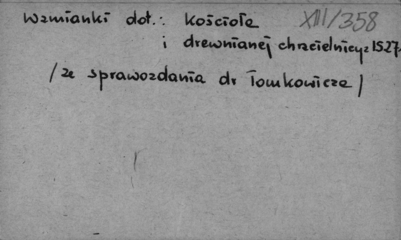 Wzmianki dot.: Kościoła XIII/358
i drewnianej chrzcielnicy z 1527.
/ze sprawozdania dr Tomkowicza/